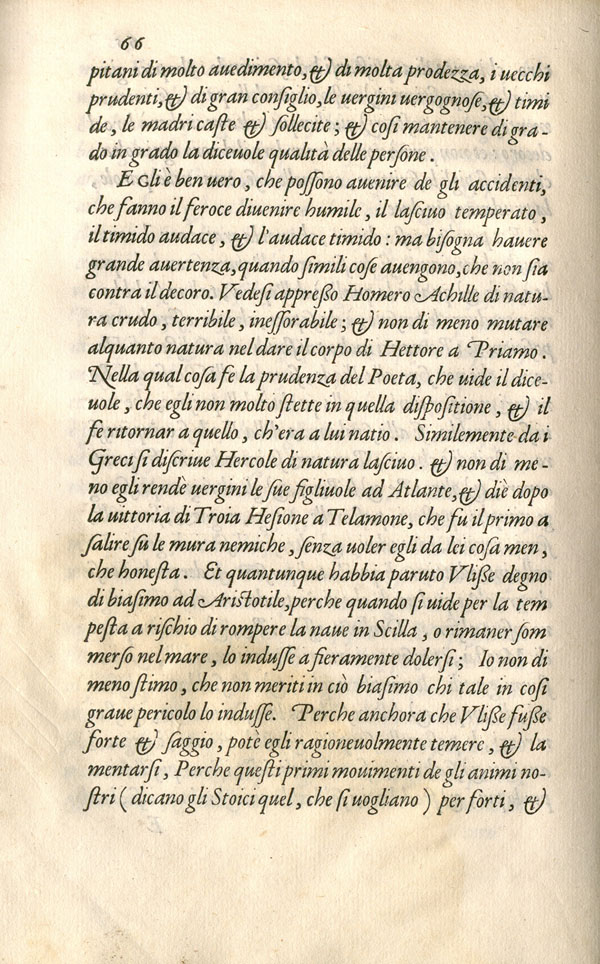 66
pitani di molto auedimento, & di molta prodezza, i uecchi
prudenti, & di gran consiglio, le uergini uergognose, & timi
de, le madri caste & sollecite; & cosi mantenere di gra-
do in grado la diceuole qualità delle persone.
EGli è ben uero, che possono auenire de gli accidenti,
che fanno il feroce diuenire humile, il lasciuo temperato,
il timido audace, & l'audace timido: ma bisogna hauere
grande auertenza, quando simili cose auengono, che non sia
contra il decoro. Vedesi appreßo Homero Achille di natu-
ra crudo, terribile, inessorabile; & non di meno mutare
alquanto natura nel dare il corpo di Hettore a Priamo.
Nella qual cosa fe la prudenza del Poeta, che uide il dice-
uole, che egli non molto stette in quella dispositione, & il
fe ritornar a quello, ch'era a lui natio. Similemente da i
Greci si discriue Hercole di natura lasciuo. & non di me-
no egli rendè uergini le sue figliuole ad Atlante, & diè dopo
la uittoria di Troia Hesione a Telamone, che fu il primo a
salire sù le mura nemiche, senza uoler egli da lei cosa men,
che honesta. Et quantunque habbia paruto Vliße degno
di biasimo ad Aristotile, perche quando si uide per la tem
pesta a rischio di rompere la naue in Scilla, o rimaner som
merso nel mare, lo indusse a fieramente dolersi; Io non di
meno stimo, che non meriti in ciò biasimo chi tale in cosi
graue pericolo lo indusse. Perche anchora che Vliße fuße
forte & saggio, potè egli ragioneuolmente temere, & la
mentarsi, Perche questi primi mouimenti de gli animi no-
stri (dicano gli Stoici quel, che si uogliano) per forti, &